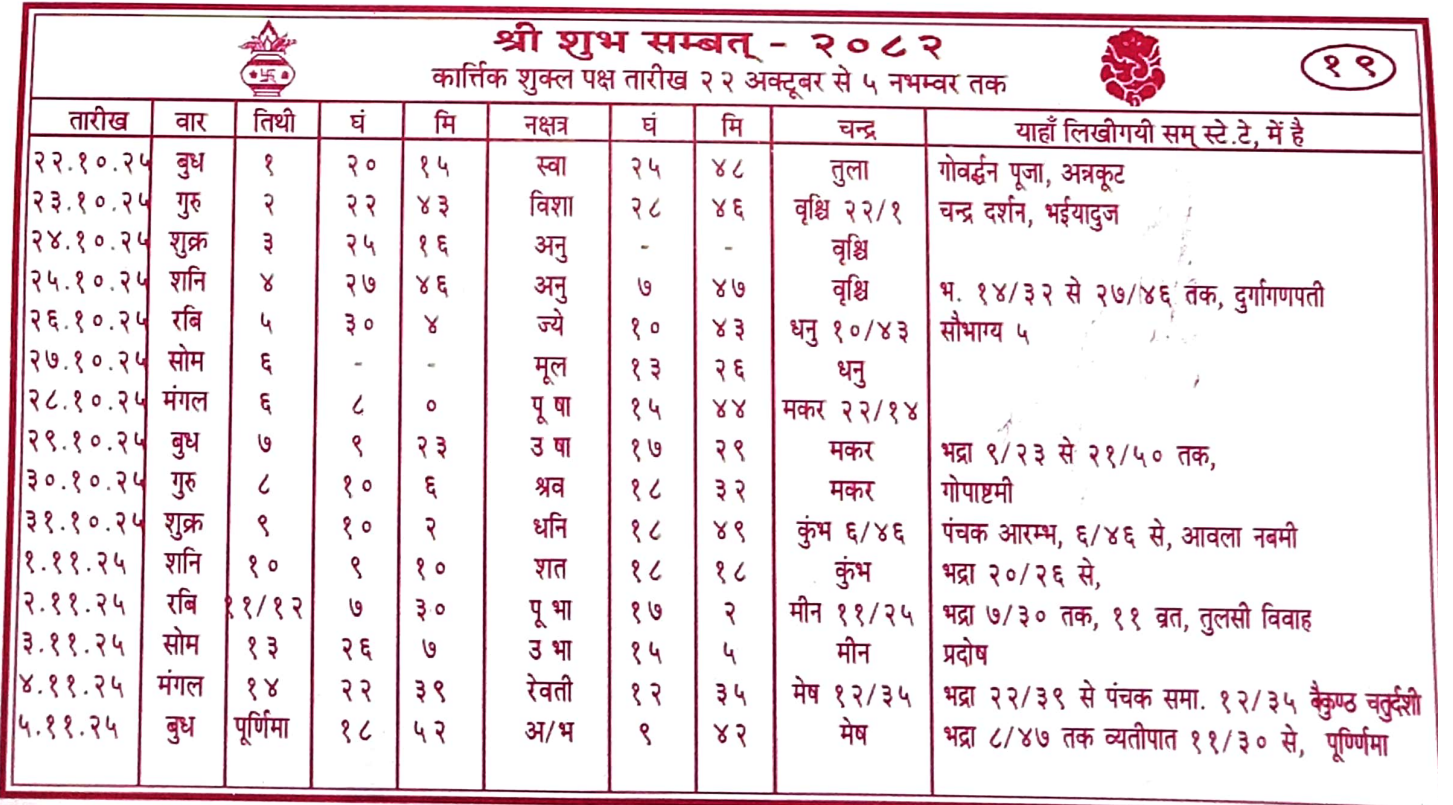 श्री शुभ सम्बत् - २०८२
१९
कार्त्तिक शुक्ल पक्ष तारीख २२ अक्टूबर से ५ नभम्वर तक
तारीख वार तिथी घं मि नक्षत्र घं मि चन्द्र याहाँ लिखीगयी सम् स्टे.टे, में है
२२.१०.२५ बुध १ २० १५ स्वा २५ ४८ तुला गोवर्द्धन पूजा, अन्नकूट
२३.१०.२५ गुरु २ २२ ४३ विशा २८ ४६ वृश्चि २२/१ चन्द्र दर्शन, भईयादुज
२४.१०.२५ शुक्र ३ २५ १६ अनु - - वृश्चि
२५.१०.२५ शनि ४ २७ ४६ अनु ७ ४७ वृश्चि भ. १४/३२ से २७/४६ तक, दुर्गागणपती
२६.१०.२५ रबि ५ ३० ४ ज्ये १० ४३ धनु १०/४३ सौभाग्य ५
२७.१०.२५ सोम ६ - - मूल १३ २६ धनु
२८.१०.२५ मंगल ६ ८ ० पू षा १५ ४४ मकर २२/१४
२९.१०.२५ बुध ७ ९ २३ उ षा १७ २९ मकर भद्रा ९/२३ से २१/५० तक,
३०.१०.२५ गुरु ८ १० ६ श्रव १८ ३२ मकर गोपाष्टमी
३१.१०.२५ शुक्र ९ १० २ धनि १८ ४९ कुंभ ६/४६ पंचक आरम्भ, ६/४६ से, आवला नबमी
१.११.२५ शनि १० ९ १० शत १८ १८ कुंभ भद्रा २०/२६ से,
२.११.२५ रबि ११/१२ ७ ३० पू भा १७ २ मीन ११/२५ भद्रा ७/३० तक, ११ व्रत, तुलसी विवाह
३.११.२५ सोम १३ २६ ७ उ भा १५ ५ मीन प्रदोष
४.११.२५ मंगल १४ २२ ३९ रेवती १२ ३५ मेष १२/३५ भद्रा २२/३९ से पंचक समा. १२/३५ बैकुण्ठ चतुर्दशी
५.११.२५ बुध पूर्णिमा १८ ५२ अ/भ ९ ४२ मेष भद्रा ८/४७ तक व्यतीपात ११/३० से, पूर्ण्णिमा